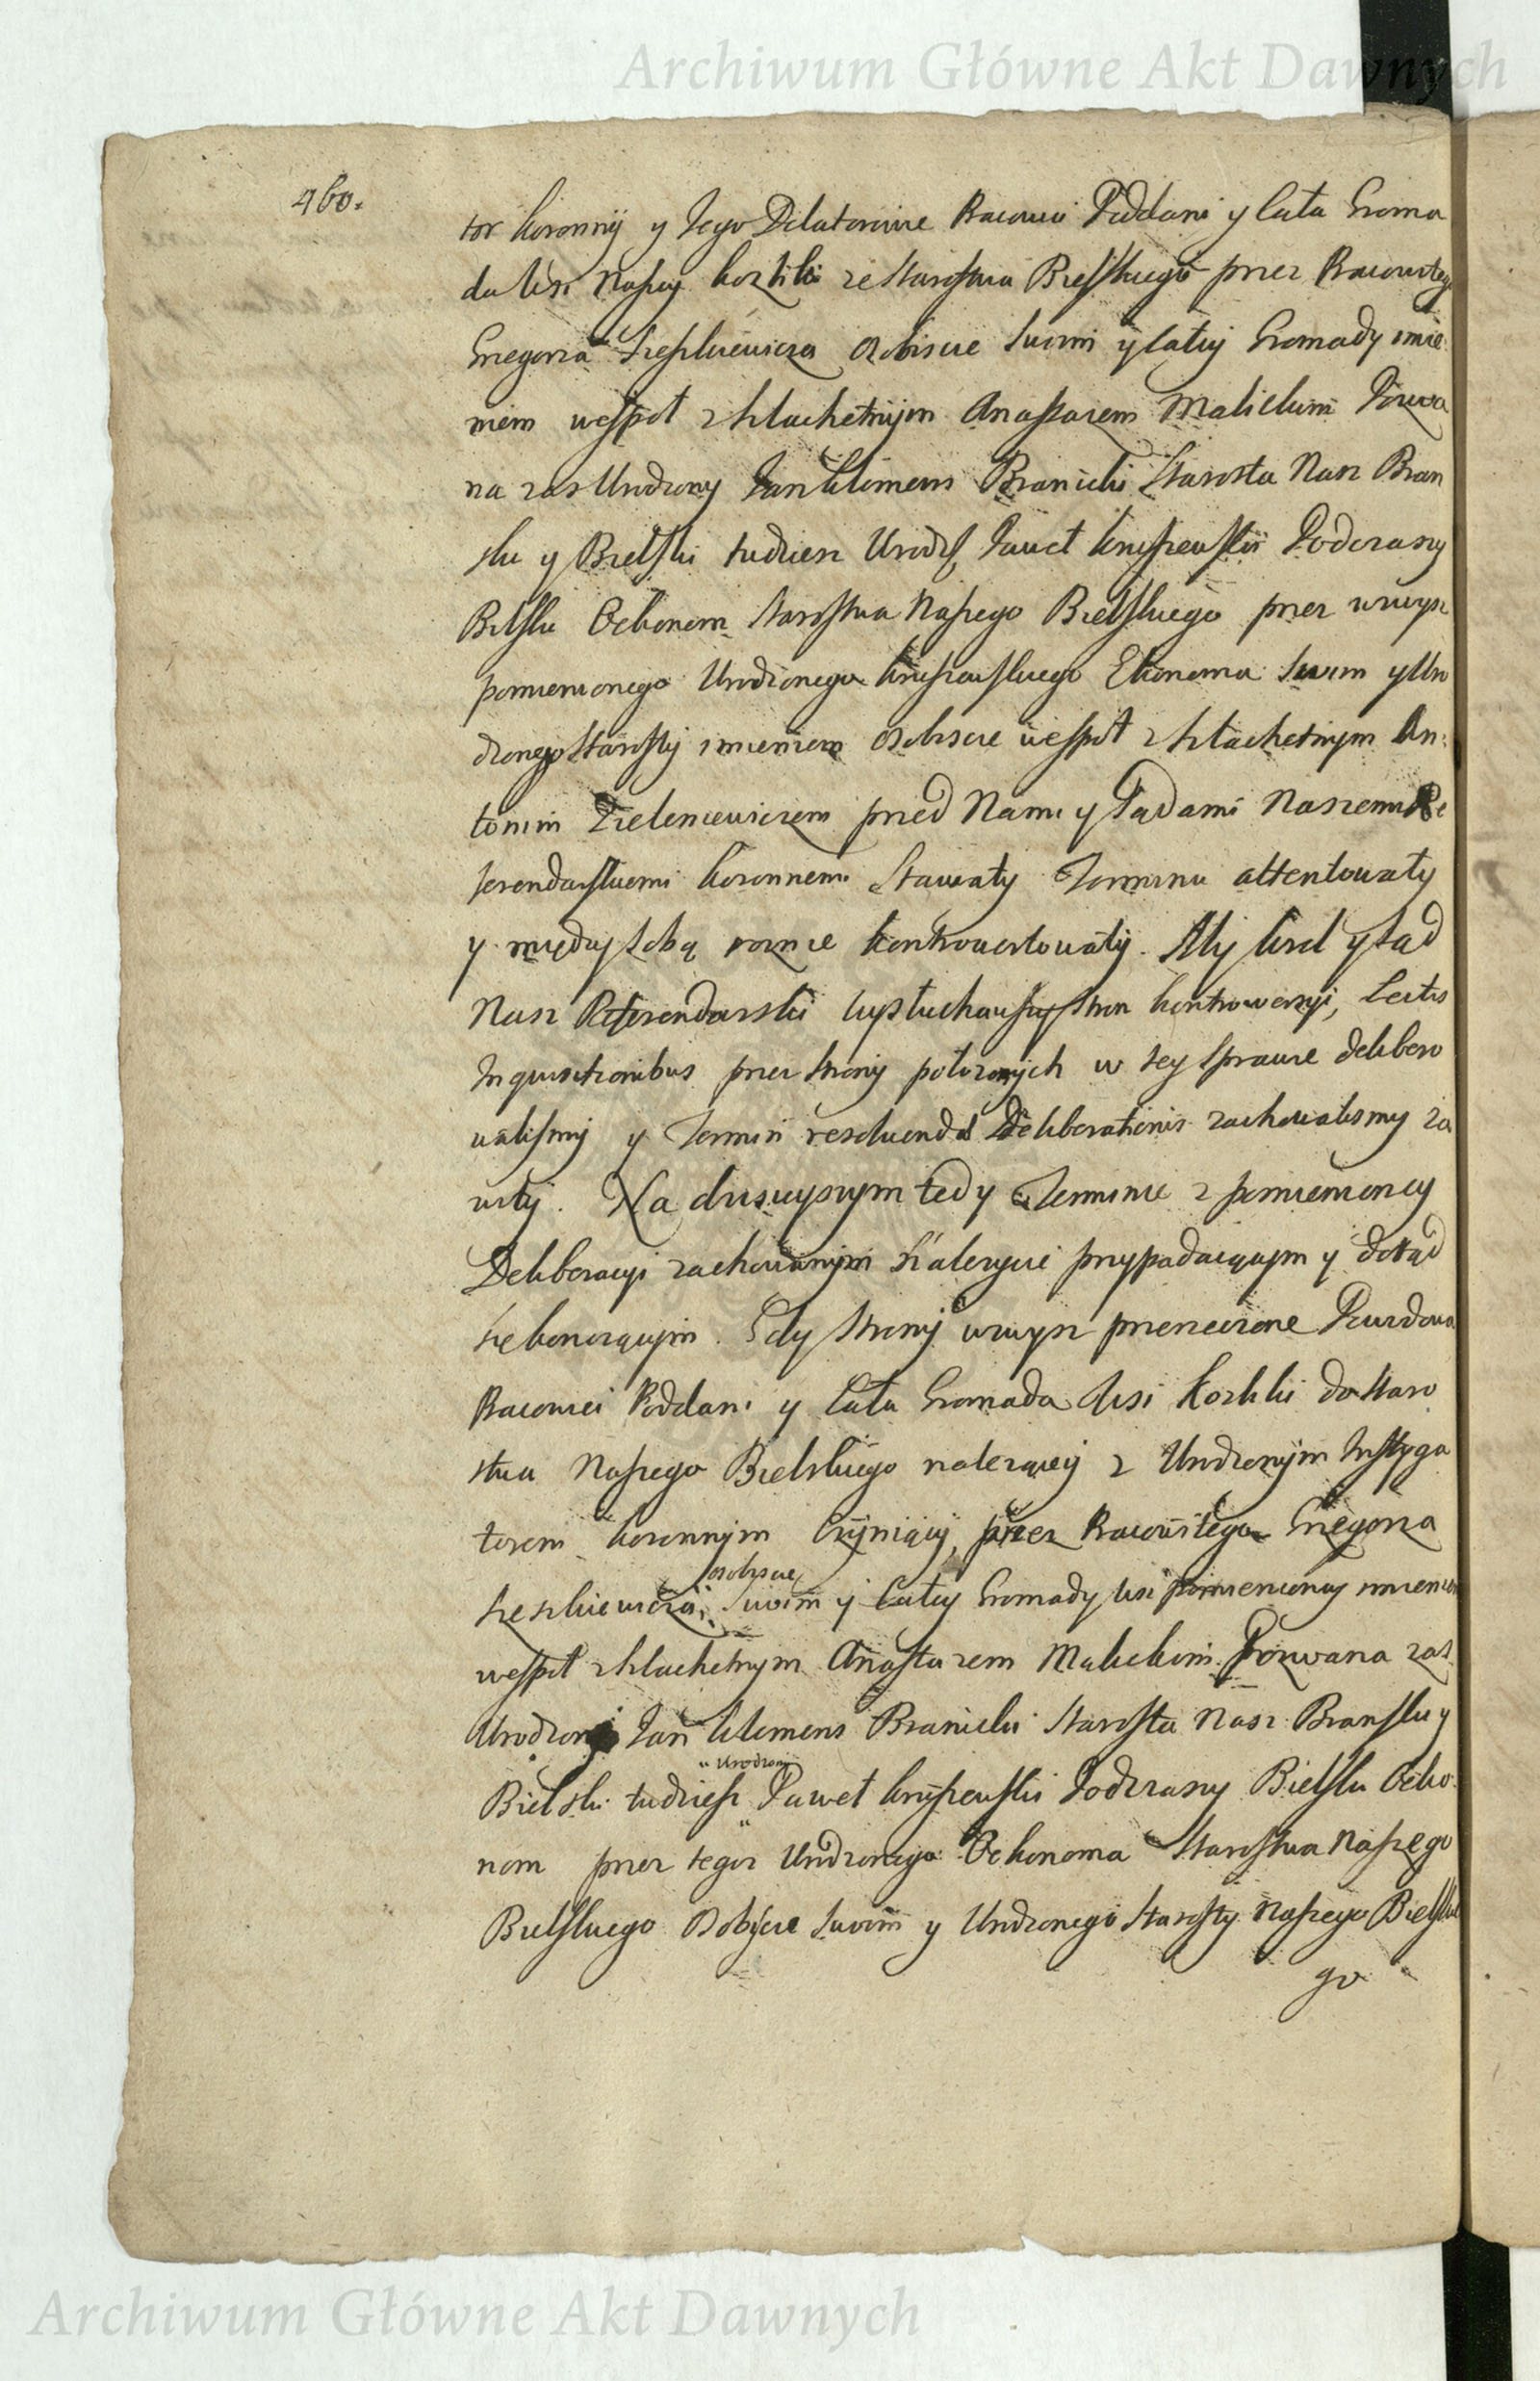 Archiwum Główne Akt Dawnych
460.
tor koronny y Jego Delatorowie Pracowici Poddani y Cała Groma
da Wsi Naszey Kozliki ze Starostwa Bielskiego przez Pracowitego
Grzegorza osobiscie swoim y całey Gromady imie
niem wespoł z Szlachetnym Anastazem Malickim Pozwa
na zas Urodzony Jan Klemens Branicki Starosta Nasz Bran
ski y Bielski tudziesz Urodz. Paweł Kruszewski Podczaszy
Bielski Oekonom Starostwa Naszego Bielskiego przez wzwysz
pomienionego Urodzonego Kruszewskiego Ekonoma swoim y Uro
dzonego Starosty imieniem osobiscie wespoł z Szlachetnym An:
tonim Zieleniewiczem przed Nami y Sądami Naszemi Re
ferendarskiemi Koronnemi Stawały Terminu attentowały
y między sobą roznie kontrowertowały. My Krol y Sąd
Nasz Referendarski wysłuchawszy stron kontrowersyi, Lectis
Inquisitionibus przez strony położonych w tey sprawie delibero
walismy y Termin resolvendæ Deliberationis zachowalismy za
wity. Na dzisieyszym tedy Terminie z pomienioney
Deliberacyi zachowanym przypadaiącym y dotąd
się konczącym. Gdy strony wzwysz przerzeczone Powodowa
Pracowici Poddani y Cała Gromada Wsi Kozliki do Staro
stwa Naszego Bielskiego należącey z Urodzonym Instyga
torem koronnym Czyniący, przez Pracowitego Grzegorza
osobiscie
swoim y całey Gromady wsi pomienioney imieniem
wespoł z Szlachetnym Anastazem Malickim. Pozwana zas
Urodzony Jan Klemens Branicki Starosta Nasz Branski y
" Urodzony
Bielski tudziesz " Paweł Kruszewski Podczaszy Bielski Oeko
nom przez tegoz Urodzonego Oekonoma Starostwa Naszego
Bielskiego Osobiscie swoim y Urodzonego Starosty Naszego Bielskie
go
Archiwum Główne Akt Dawnych